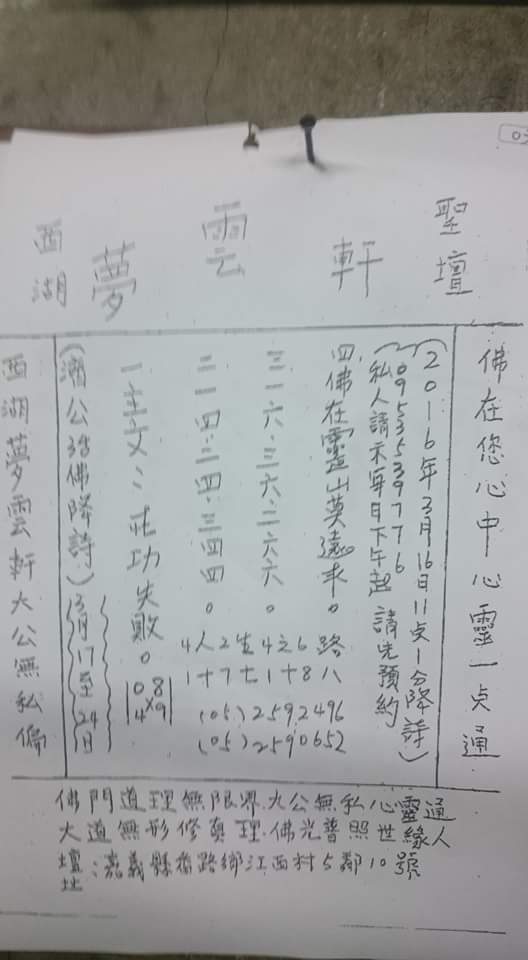 西湖 夢雲軒 聖壇
佛在您心中心靈一点通
(2016年3月16日11点1分降詩)
0953539776
私人請示每日下午起 請先預約
四佛在靈山莫遠求。
三一六.三六.二六六。
二一四.二四.三四四。
一主文:二成功失敗。
4人2生4之6路
1+7七1+8八
08
×
49
(05)2592496
(05)2590652
(濟公活佛降詩)
3月17至24日
西湖夢雲軒大公無私偏
佛門道理無限界.大公無私心靈通
大道無形修真理.佛光普照世緣人
壇址:嘉義縣番路鄉江西村5鄰10號